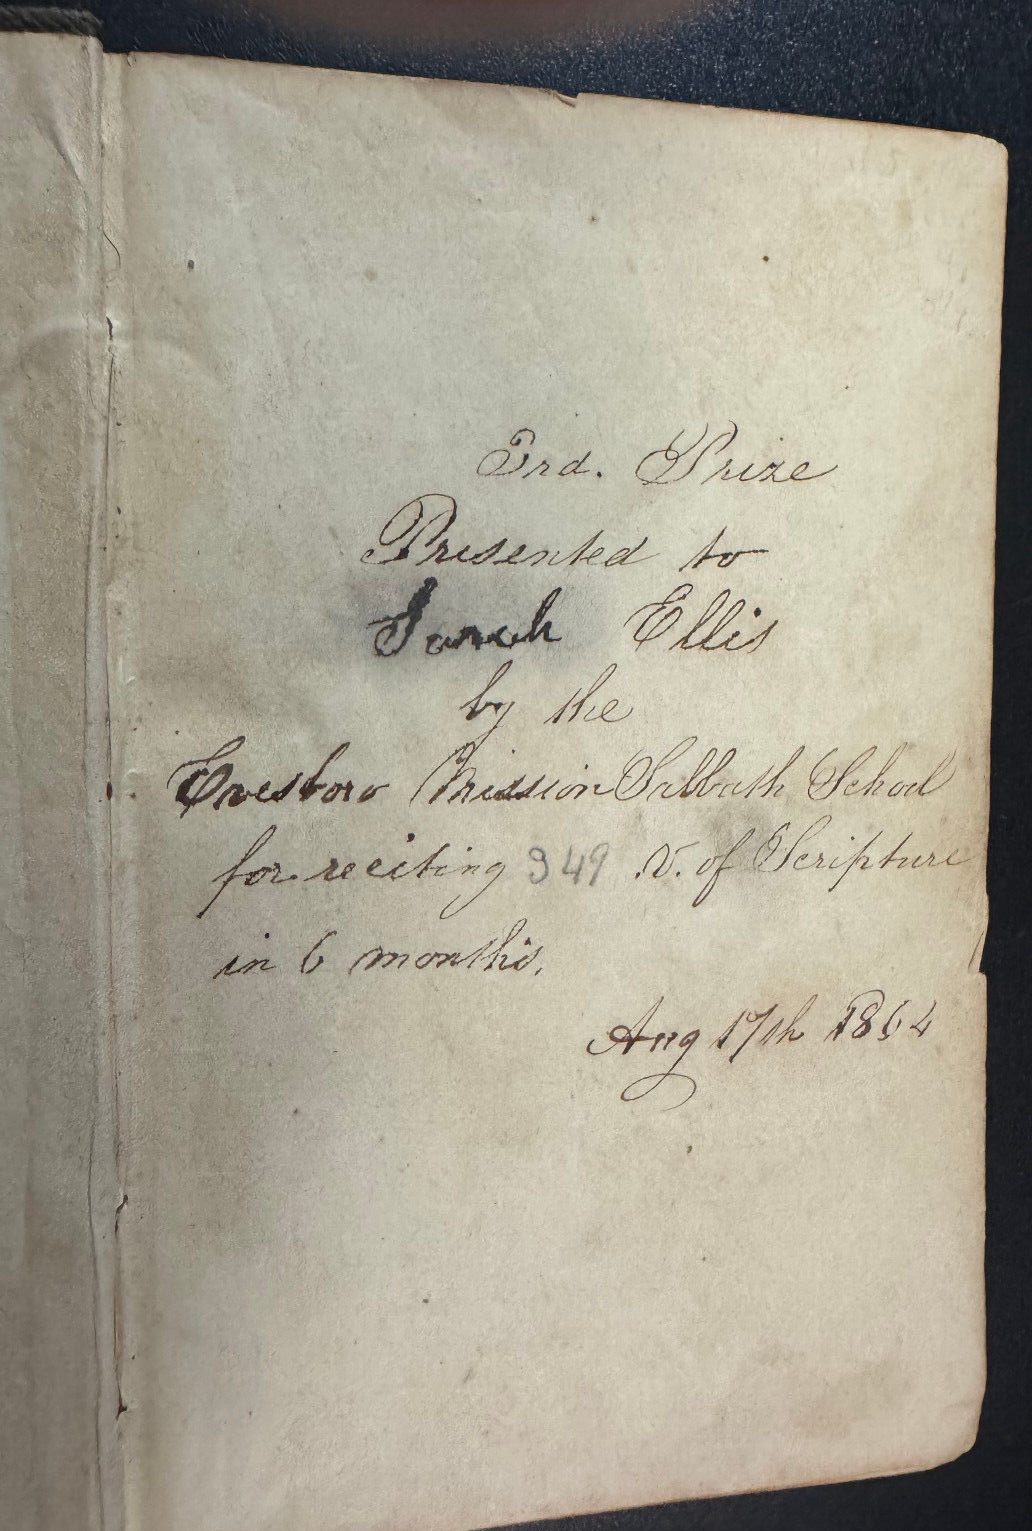 3rd. Prize
Presented to
Sarah Ellis
by the
Evesboro Mission Sabbath School
for reciting 349 .V. of Scripture
in 6 months.
Aug 17th 1864